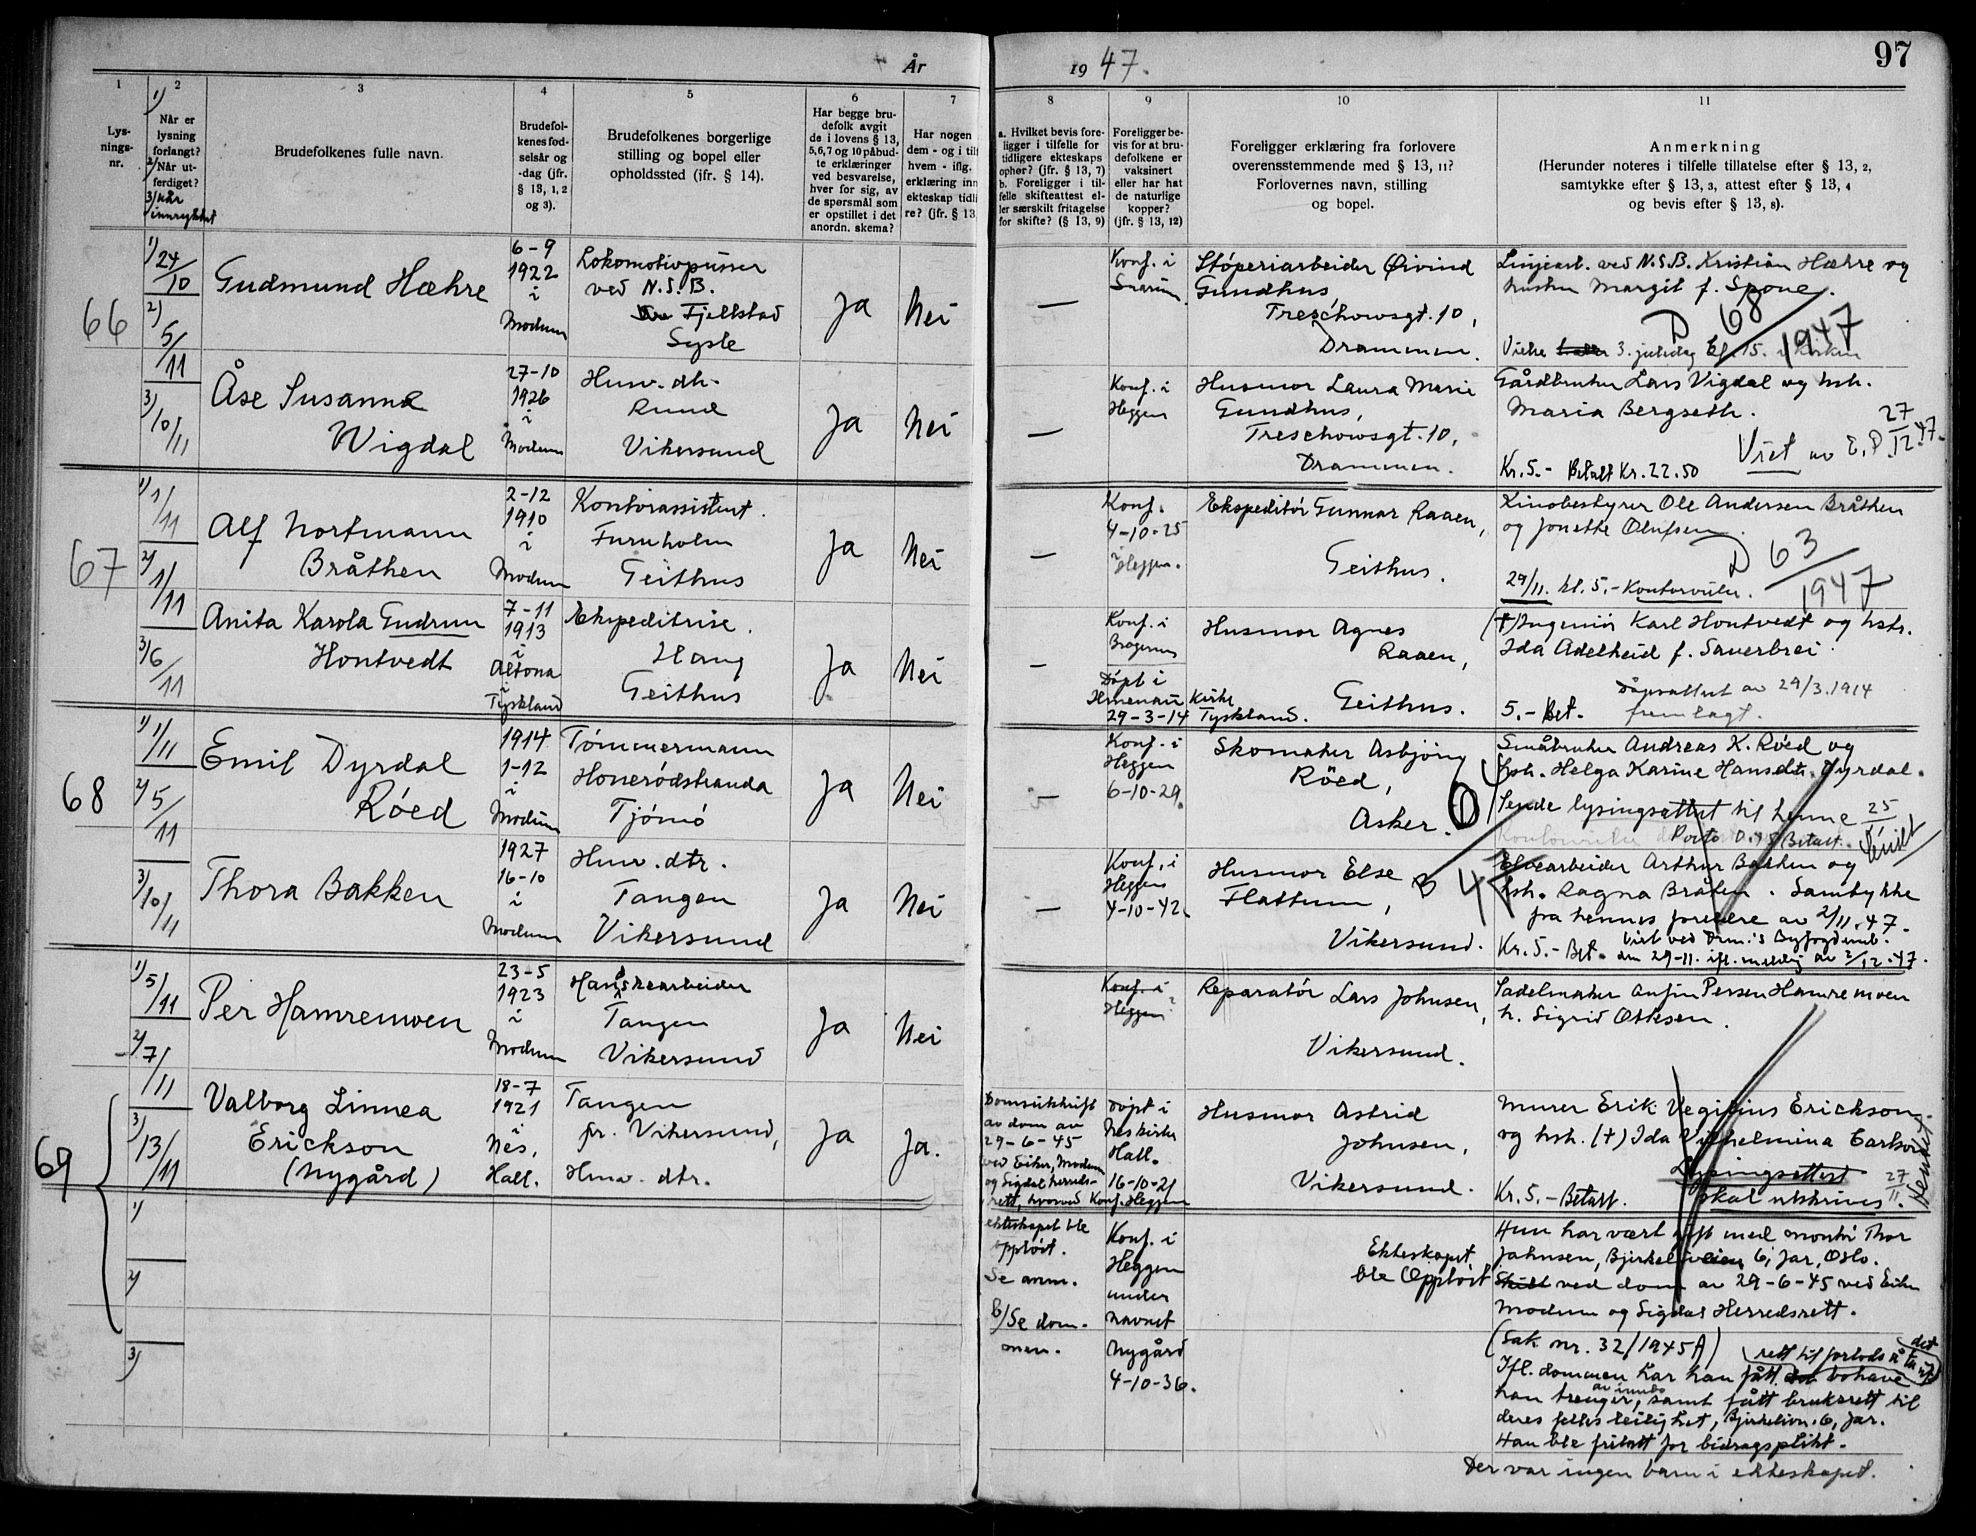 År
19 47.
97
1
2
3
4
5
6
7
8
9
10
11
Lys-
nings-
nr.
1)
Når er
lysning
forlangt?
2) Når ut-
ferdiget?
3) når
innrykket
Brudefolkenes fulle navn.
Brudefol-
kenes fød-
selsår og
-dag (jfr.
§ 13, 1, 2
og 3).
Brudefolkenes borgerlige
stilling og bopel eller
opholdssted (jfr. § 14).
Har begge bru-
defolk avgit
de i lovens § 13,
5,6,7 og 10 påbud-
te erklæringer
ved besvarelse,
hver for sig, av
de spørsmål som
er opstillet i det
anordn. skema?
Har nogen
dem - og i tilf
hvem - iflg.
erklæring inn
ekteskap tidli
re? (jfr. § 13,
a. Hvilket bevis fore-
ligger i tilfelle for
tidligere ekteskaps
ophør? (jfr. § 13, 7)
b. Foreligger i til-
felle skifteattest el-
ler særskilt fritagelse
for skifte? (§ 13, 9)
Foreligger be-
vis for at bru-
defolkene er
vaksinert
eller har hat
de naturlige
kopper?
(jfr. § 13, 12)
Foreligger erklæring fra forlovere
overensstemmende med § 13, 11?
Forlovernes navn, stilling
og bopel.
Anmerkning
(Herunder noteres i tilfelle tillatelse efter § 13, 2,
samtykke efter § 13, 3, attest efter § 13, 4
og bevis efter § 13, 8).
66
1) 24/10
2) 5/11
3) 10/11
Gudmund Hæhre
6-9
1922
i
Modum
Lokomotivpusser
ved N.S.B.
Fjellstad
Sysle
Ja
Nei
—
Konf. i
Snarum.
Støperiarbeider Øivind
Gundhus,
Treschowsgt. 10,
Drammen.
Linjearb. ved N.S.B. Kristian Hæhre og
hustru Margit f. Spone.
D 68/1947
Vielse 3. juledag kl. 15. i kirken
Åse Susanna
Wigdal
27-10
1926
i
Modum
Husv. dtr.
Rund
Vikersund
Ja
Nei
—
Konf. i
Heggen
Husmor Laura Marie
Gundhus,
Treschowsgt. 10,
Drammen.
Gårdbruker Lars Vigdal og hsh.
Maria Bergseth.
Viet av E.P. 27/12.47.
Kr. 5.- Betalt Kr. 22.50
67
1) 1/11
2) 1/11
3) 6/11
Alf Nortmann
Bråthen
2-12
1910
i
Modum
Kontorassistent.
Furuholm
Geithus
Ja
Nei
—
Konf.
4-10-25
i Heggen.
Ekspeditør Gunnar Raaen,
Geithus.
Kinobestyrer Ole Andersen Bråthen
og Jonette Olufsen.
D 63/1947
29/11. kl. 5.- Kontorvielse.
Anita Karola Gudrun
Hontvedt
7-11
1913
i
Altona
i
Tyskland
Ekspeditrise.
Haug
Geithus
Ja
Nei
—
Konf. i
Bragernes
Døpt i
Ilmenau Kirke
29-3-14 Tyskland.
Husmor Agnes
Raaen,
Geithus.
(†) Ingeniør Karl Hontvedt og hstr.
Ida Adelheid f. Sauerbrei.
Dåpsattest av 29/3.1914
5.- Bet. fremlagt.
68
1) 1/11
2) 5/11
3) 10/11
Emil Dyrdal
Röed
1914
1-12
i
Modum
Tømmermann
Honerødstranda
Tjømø
Ja
Nei
—
Konf. i
Heggen
6-10-29.
Skomaker Asbjørn
Röed,
Asker.
Småbruker Andreas K. Röed og
hsh. Helga Karine Hansdtr. Dyrdal.
Sende lysingsattest til henne 25/
Porto 0.45 Betalt. Sendt
Thora Bakken
1927
16-10
i
Modum
Husv. dtr.
Tangen
Vikersund
Ja
Nei
—
Konf. i
Heggen
4-10-42.
Husmor Else
Flattum,
Vikersund.
B 47
Elvearbeider Arthur Bakken og
hsh. Ragna Bråten. Samtykke
fra hennes foreldre av 2/11.47.
Kr. 5.- Bet. Viet ved Drm.'s Byfogdemb.
den 29-11. ifl. melding av 2/12.47.
69
1) 5/11
2) 7/11
3) 13/11
Per Hamremoen
23-5
1923
i
Modum
Hanskearbeider
Tangen
Vikersund
Ja
Nei
Konf. i
Heggen
Reparatør Lars Johnsen,
Vikersund.
Sadelmaker Anfin Persen Hamremoen
h. Sigrid Ottesen.
Valborg Linnea
Erickson
(Nygård)
18-7
1921
i
Nes,
Hall.
Tangen
pr. Vikersund,
Husv. dtr.
Ja
Ja.
Domsutskrift
av dom av
29-6-45
ved Eiker, Modum
og Sigdal herreds-
rett, hvorved
ekteskapet ble
oppløst.
Se anm.
b/ Se dom-
men.
Døpt i
Nes kirke
Hall.
16-10-21
Konf. Heggen
Konf. i
Heggen
under
navnet
Nygård
4-10-36.
Husmor Astrid
Johnsen,
Vikersund.
Ekteskapet
ble Oppløst
Murer Erik Vegilius Erickson
og hsh. (†) Ida Vilhelmina Carlson
Lysingsattest 27/11
Kr. 5.- Betalt. skal utskrives. Hendet
Hun har vært gift med montør Thor
Johnsen, Bjerkeliveien 6, Jar, Oslo.
Skilt ved dom av 29-6-45 ved Eiker
Modum og Sigdal Herredsrett.
(Sak nr. 32/1945A) rett til forlods å ta ut det
Ifl. dommen har han fått bohave
han trenger, av innbo samt fått bruksrett til
deres felles leilighet, Bjerkelivn. 6, Jar.
Han ble fritatt for bidragsplikt.
Der var ingen barn i ekteskapet.
1)
2)
3)